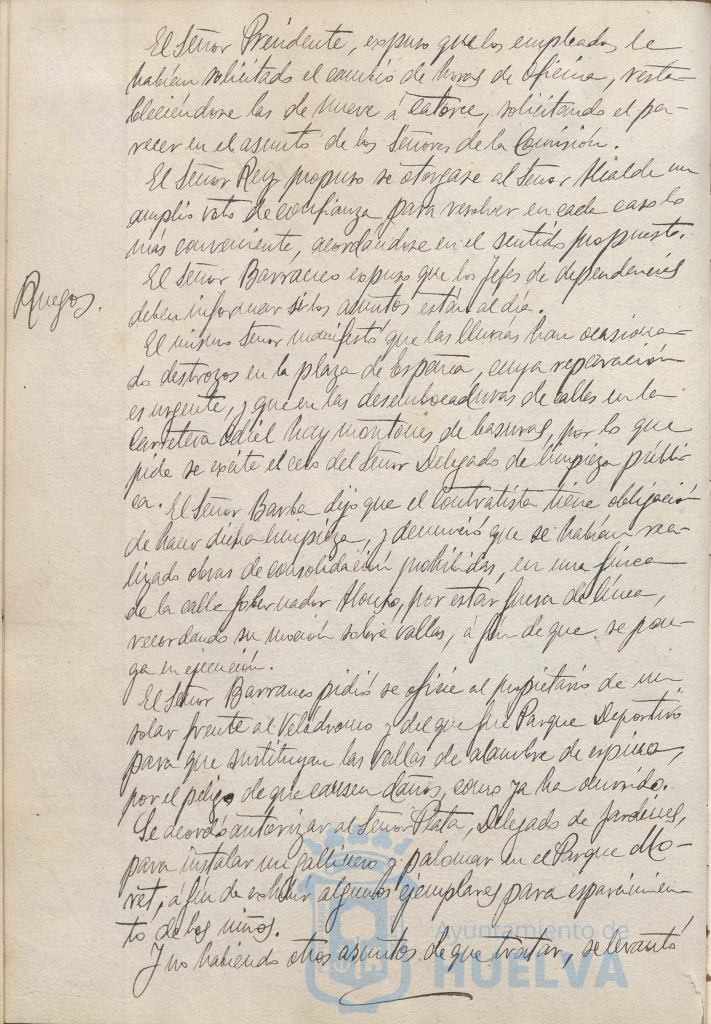 El Señor Presidente, expuso que los empleados le
habían solicitado el cambio de horas de oficina, resta-
bleciéndose las de nueve á catorce, solicitando el pa-
recer en el asunto de los Señores de la Comisión.
El Señor Rey propuso se otorgase al Señor Alcalde un
amplio voto de confianza para resolver en cada caso lo
más conveniente, acordándose en el sentido propuesto.
Ruegos.
El Señor Barranco expuso que los Jefes de dependencias
deben informar si los asuntos están al día.
El mismo Señor manifestó que las lluvias han ocasiona-
do destrozos en la plaza de España, cuya reparación
es urgente, y que en las desembocaduras de calles en la
carretera Odiel hay montones de basuras, por lo que
pide se excite el celo del Señor Delegado de limpieza públi-
ca. El Señor Barba dijo que el contratista tiene obligación
de hacer dicha limpieza, y denunció que se habían rea-
lizado obras de consolidación prohibidas, en una finca
de la calle Gobernador Alonso, por estar fuera de línea,
recordando su moción sobre vallas, á fin de que se pon-
ga en ejecución.
El Señor Barranco pidió se oficie al propietario de un
solar frente al Velódromo y del que fué Parque Deportivo
para que sustituyan las vallas de alambre de espino,
por el peligo de que causen daños, como ya ha ocurrido.
Se acordó autorizar al Señor Plata, Delegado de Jardines,
para instalar un gallinero y palomar en el Parque Mo-
ret, á fin de exhibir algunos ejemplares para esparcimien-
to de los niños.
Y no habiendo otros asuntos de que tratar, se levantó
Ayuntamiento de
HUELVA